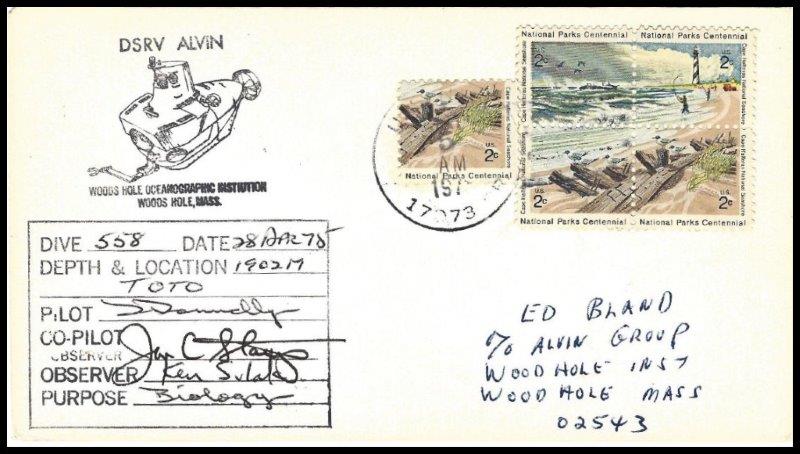 DSRV ALVIN
WOODS HOLE OCEANOGRAPHIC INSTITUTION
WOODS HOLE, MASS.
DIVE 558 DATE 28 APR 75
DEPTH & LOCATION 1902M
TOTO
PILOT Donnelly
CO-PILOT
OBSERVER
OBSERVER Ken Sulak
PURPOSE Biology
U.S.
2c
Cape Hatteras National Seashore
National Parks Centennial
AM
197
17073
National Parks Centennial
National Parks Centennial
2c
U.S.
2c
Cape Hatteras National Seashore
Cape Hatteras National Seashore
U.S.
2c
U.S.
2c
Cape Hatteras National Seashore
Cape Hatteras National Seashore
National Parks Centennial
National Parks Centennial
ED BLAND
% ALVIN GROUP
WOOD HOLE INST
WOOD HOLE MASS
02543